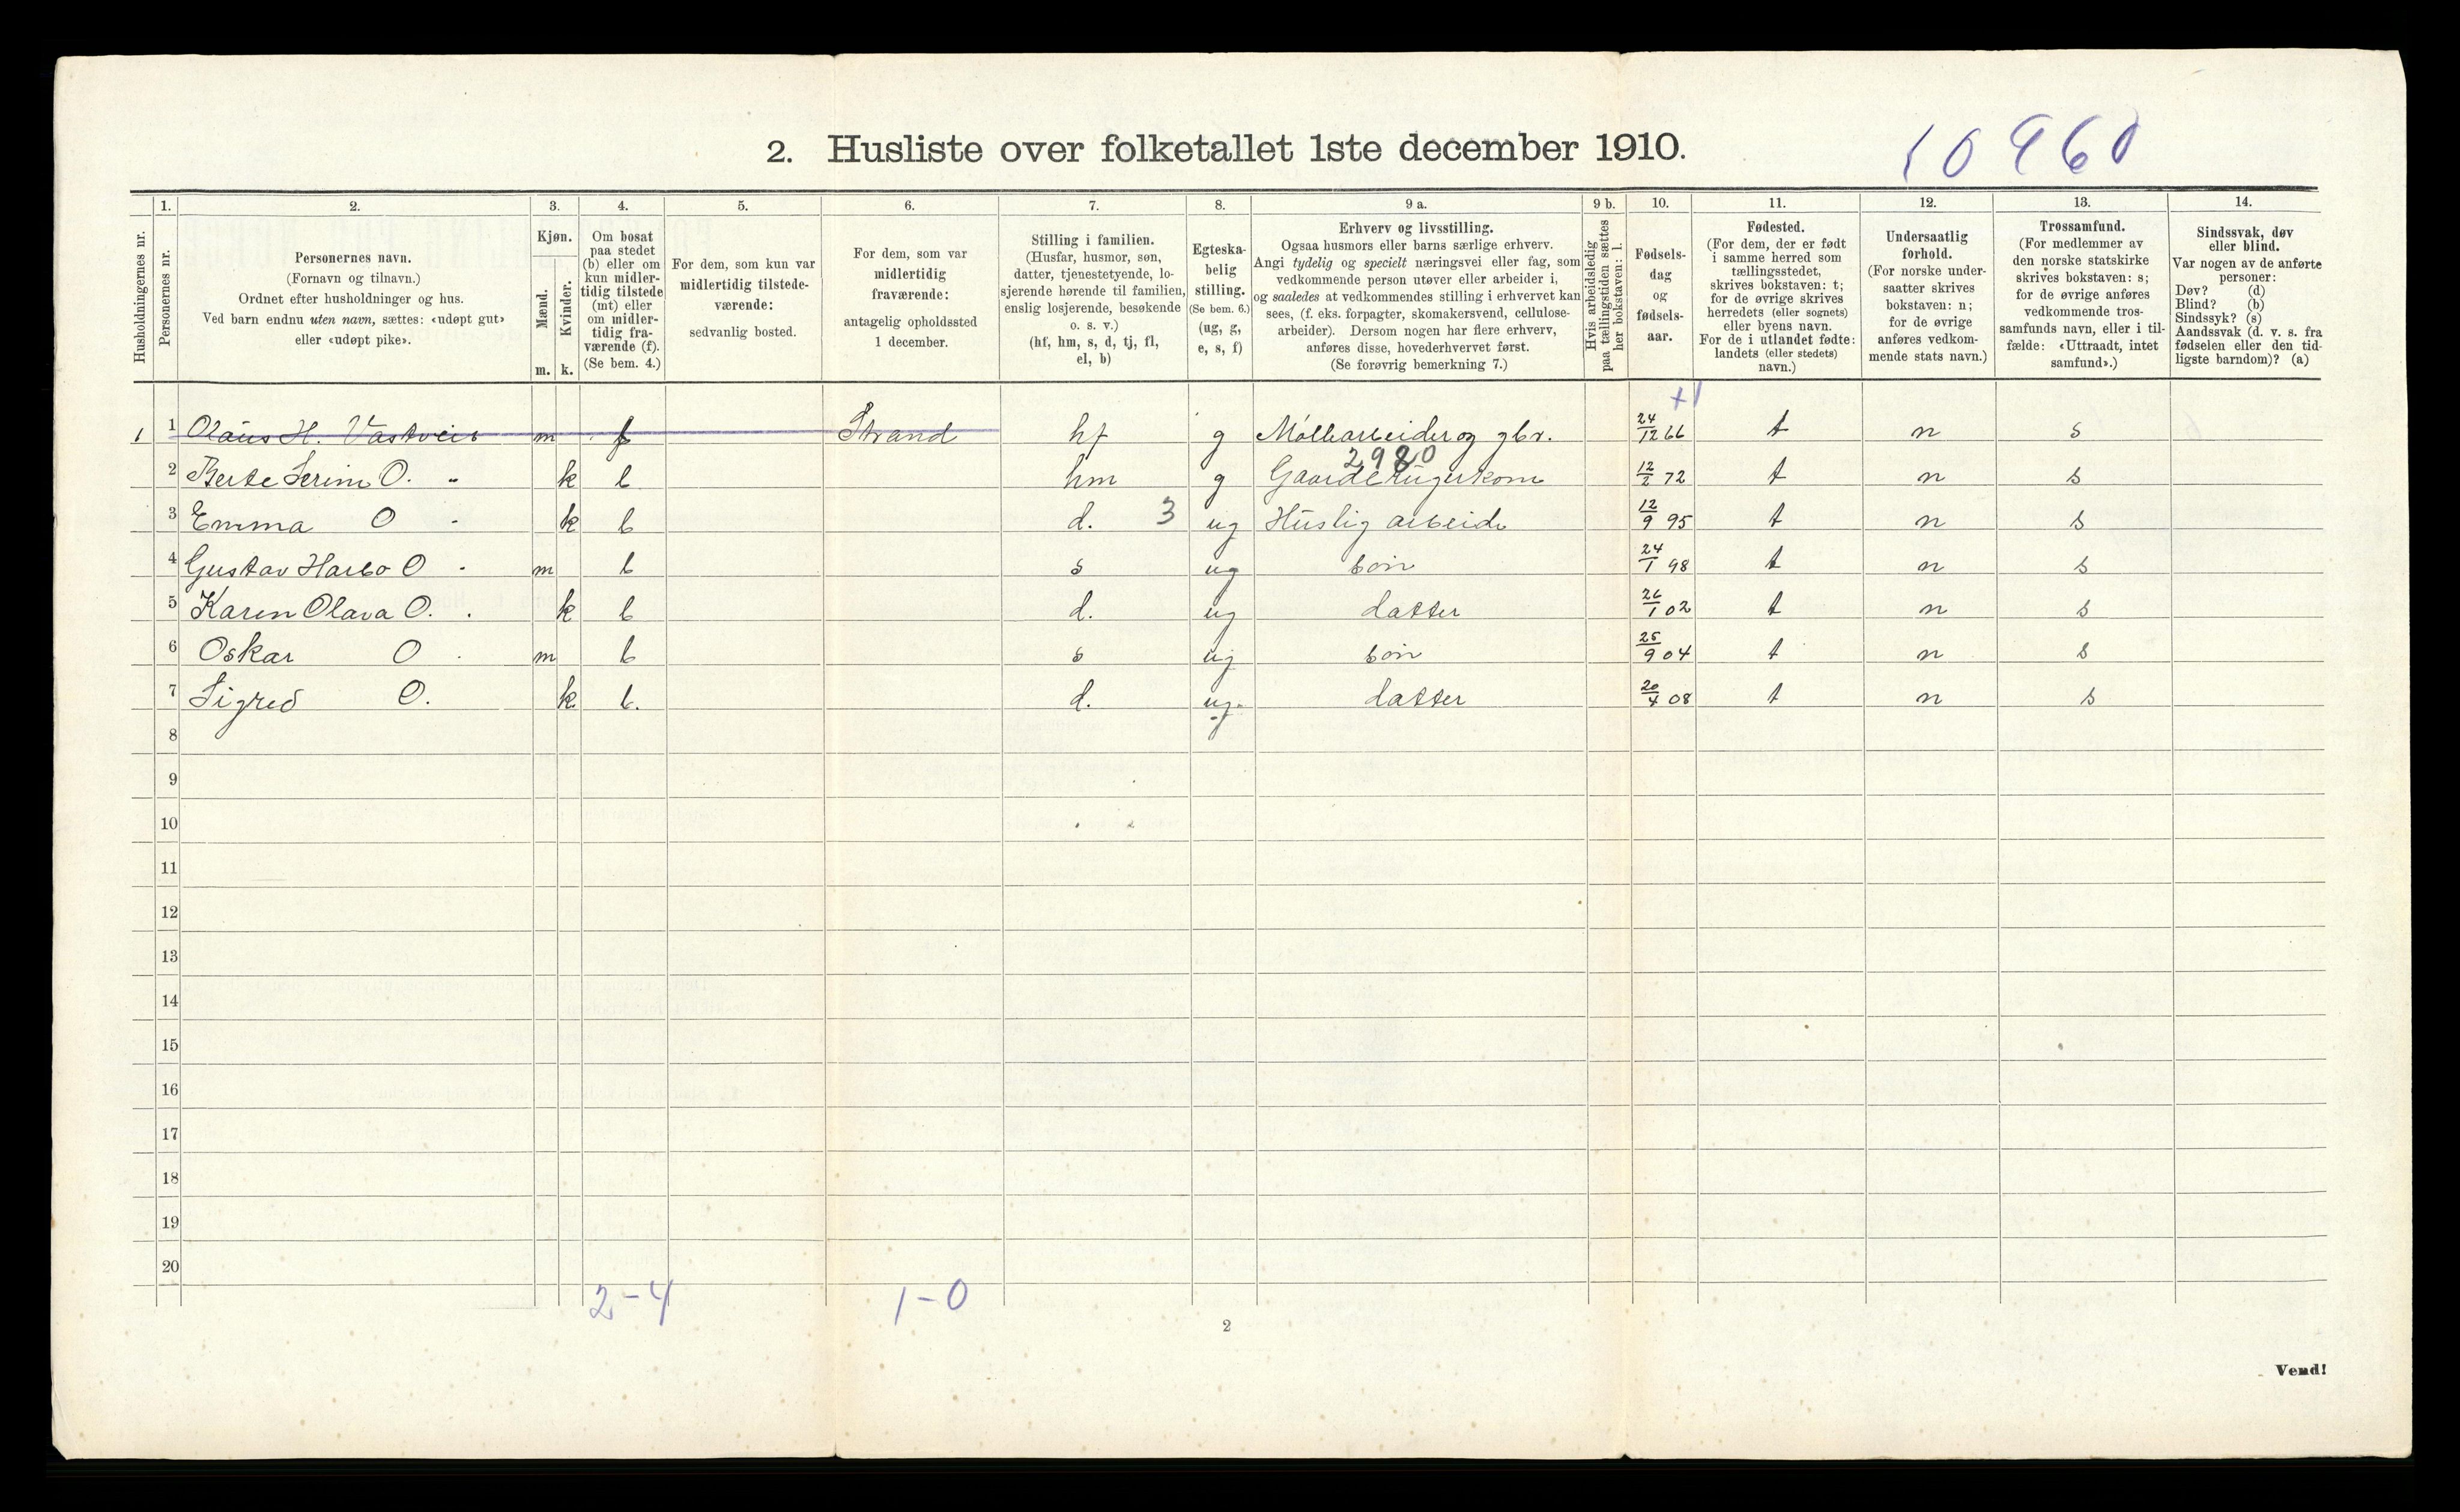 2. Husliste over folketallet 1ste december 1910.
10960
Husholdningernes nr.
1.
Personernes nr.
2.
Personernes navn.
(Fornavn og tilnavn.)
Ordnet efter husholdninger og hus.
Ved barn endnu uten navn, sættes: «udøpt gut»
eller «udøpt pike».
3.
Kjøn.
Mænd.
Kvinder.
m. k.
4.
Om bosat
paa stedet
(b) eller om
kun midler-
tidig tilstede
(mt) eller
om midler-
tidig fra-
værende (f).
(Se bem. 4.)
5.
For dem, som kun var
midlertidig tilstede-
værende:
sedvanlig bosted.
6.
For dem, som var
midlertidig
fraværende:
antagelig opholdssted
1 december.
7.
Stilling i familien.
(Husfar, husmor, søn,
datter, tjenestetyende, lo-
sjerende hørende til familien,
enslig losjerende, besøkende
o. s. v.)
(hf, hm, s, d, tj, fl,
el, b)
8.
Egteska-
belig
stilling.
(Se bem. 6.)
(ug, g,
e, s, f)
9 a.
Erhverv og livsstilling.
Ogsaa husmors eller barns særlige erhverv.
Angi tydelig og specielt næringsvei eller fag, som
vedkommende person utøver eller arbeider i,
og saaledes at vedkommendes stilling i erhvervet kan
sees, (f. eks. forpagter, skomakersvend, cellulose-
arbeider). Dersom nogen har flere erhverv,
anføres disse, hovederhvervet først.
(Se forøvrig bemerkning 7.)
9 b.
Hvis arbeidsledig
paa tællingstiden sættes
her bokstaven: l.
10.
Fødsels-
dag
og
fødsels-
aar.
11.
Fødested.
(For dem, der er født
i samme herred som
tællingsstedet,
skrives bokstaven: t;
for de øvrige skrives
herredets (eller sognets)
eller byens navn.
For de i utlandet fødte:
landets (eller stedets)
navn.)
12.
Undersaatlig
forhold.
(For norske under-
saatter skrives
bokstaven: n;
for de øvrige
anføres vedkom-
mende stats navn.)
13.
Trossamfund.
(For medlemmer av
den norske statskirke
skrives bokstaven: s;
for de øvrige anføres
vedkommende tros-
samfunds navn, eller i til-
fælde: «Uttraadt, intet
samfund».)
14.
Sindssvak, døv
eller blind.
Var nogen av de anførte
personer:
Døv? (d)
Blind? (b)
Sindssyk? (s)
Aandssvak (d. v. s. fra
fødselen eller den tid-
ligste barndom)? (a)
+1
1 1 Olaus H. Vastveit m f Strand hf g og gbr. 24/12 66 t n s
2980
2 Berte Serine O. " k b hm g 12/2 72 t n s
3 Emma O " k b d. 3 ug Huslig arbeide 12/9 95 t n s
4 Gustav Harbo O " m b s ug søn 24/1 98 t n s
5 Karen Olava O. " k b d. ug datter 26/1 02 t n s
6 Oskar O " m b s ug søn 25/9 04 t n s
7 Sigred O. k b. d. ug. datter 20/4 08 t n s
8
9
10
11
12
13
14
15
16
17
18
19
20
2-4 1-0
2
Vend!